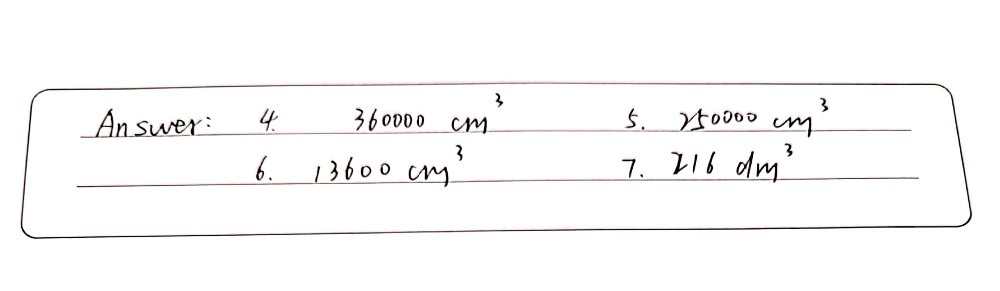 Answer: 4. 360000 cm³ 5. 250000 cm³
6. 13600 cm³ 7. 216 dm³